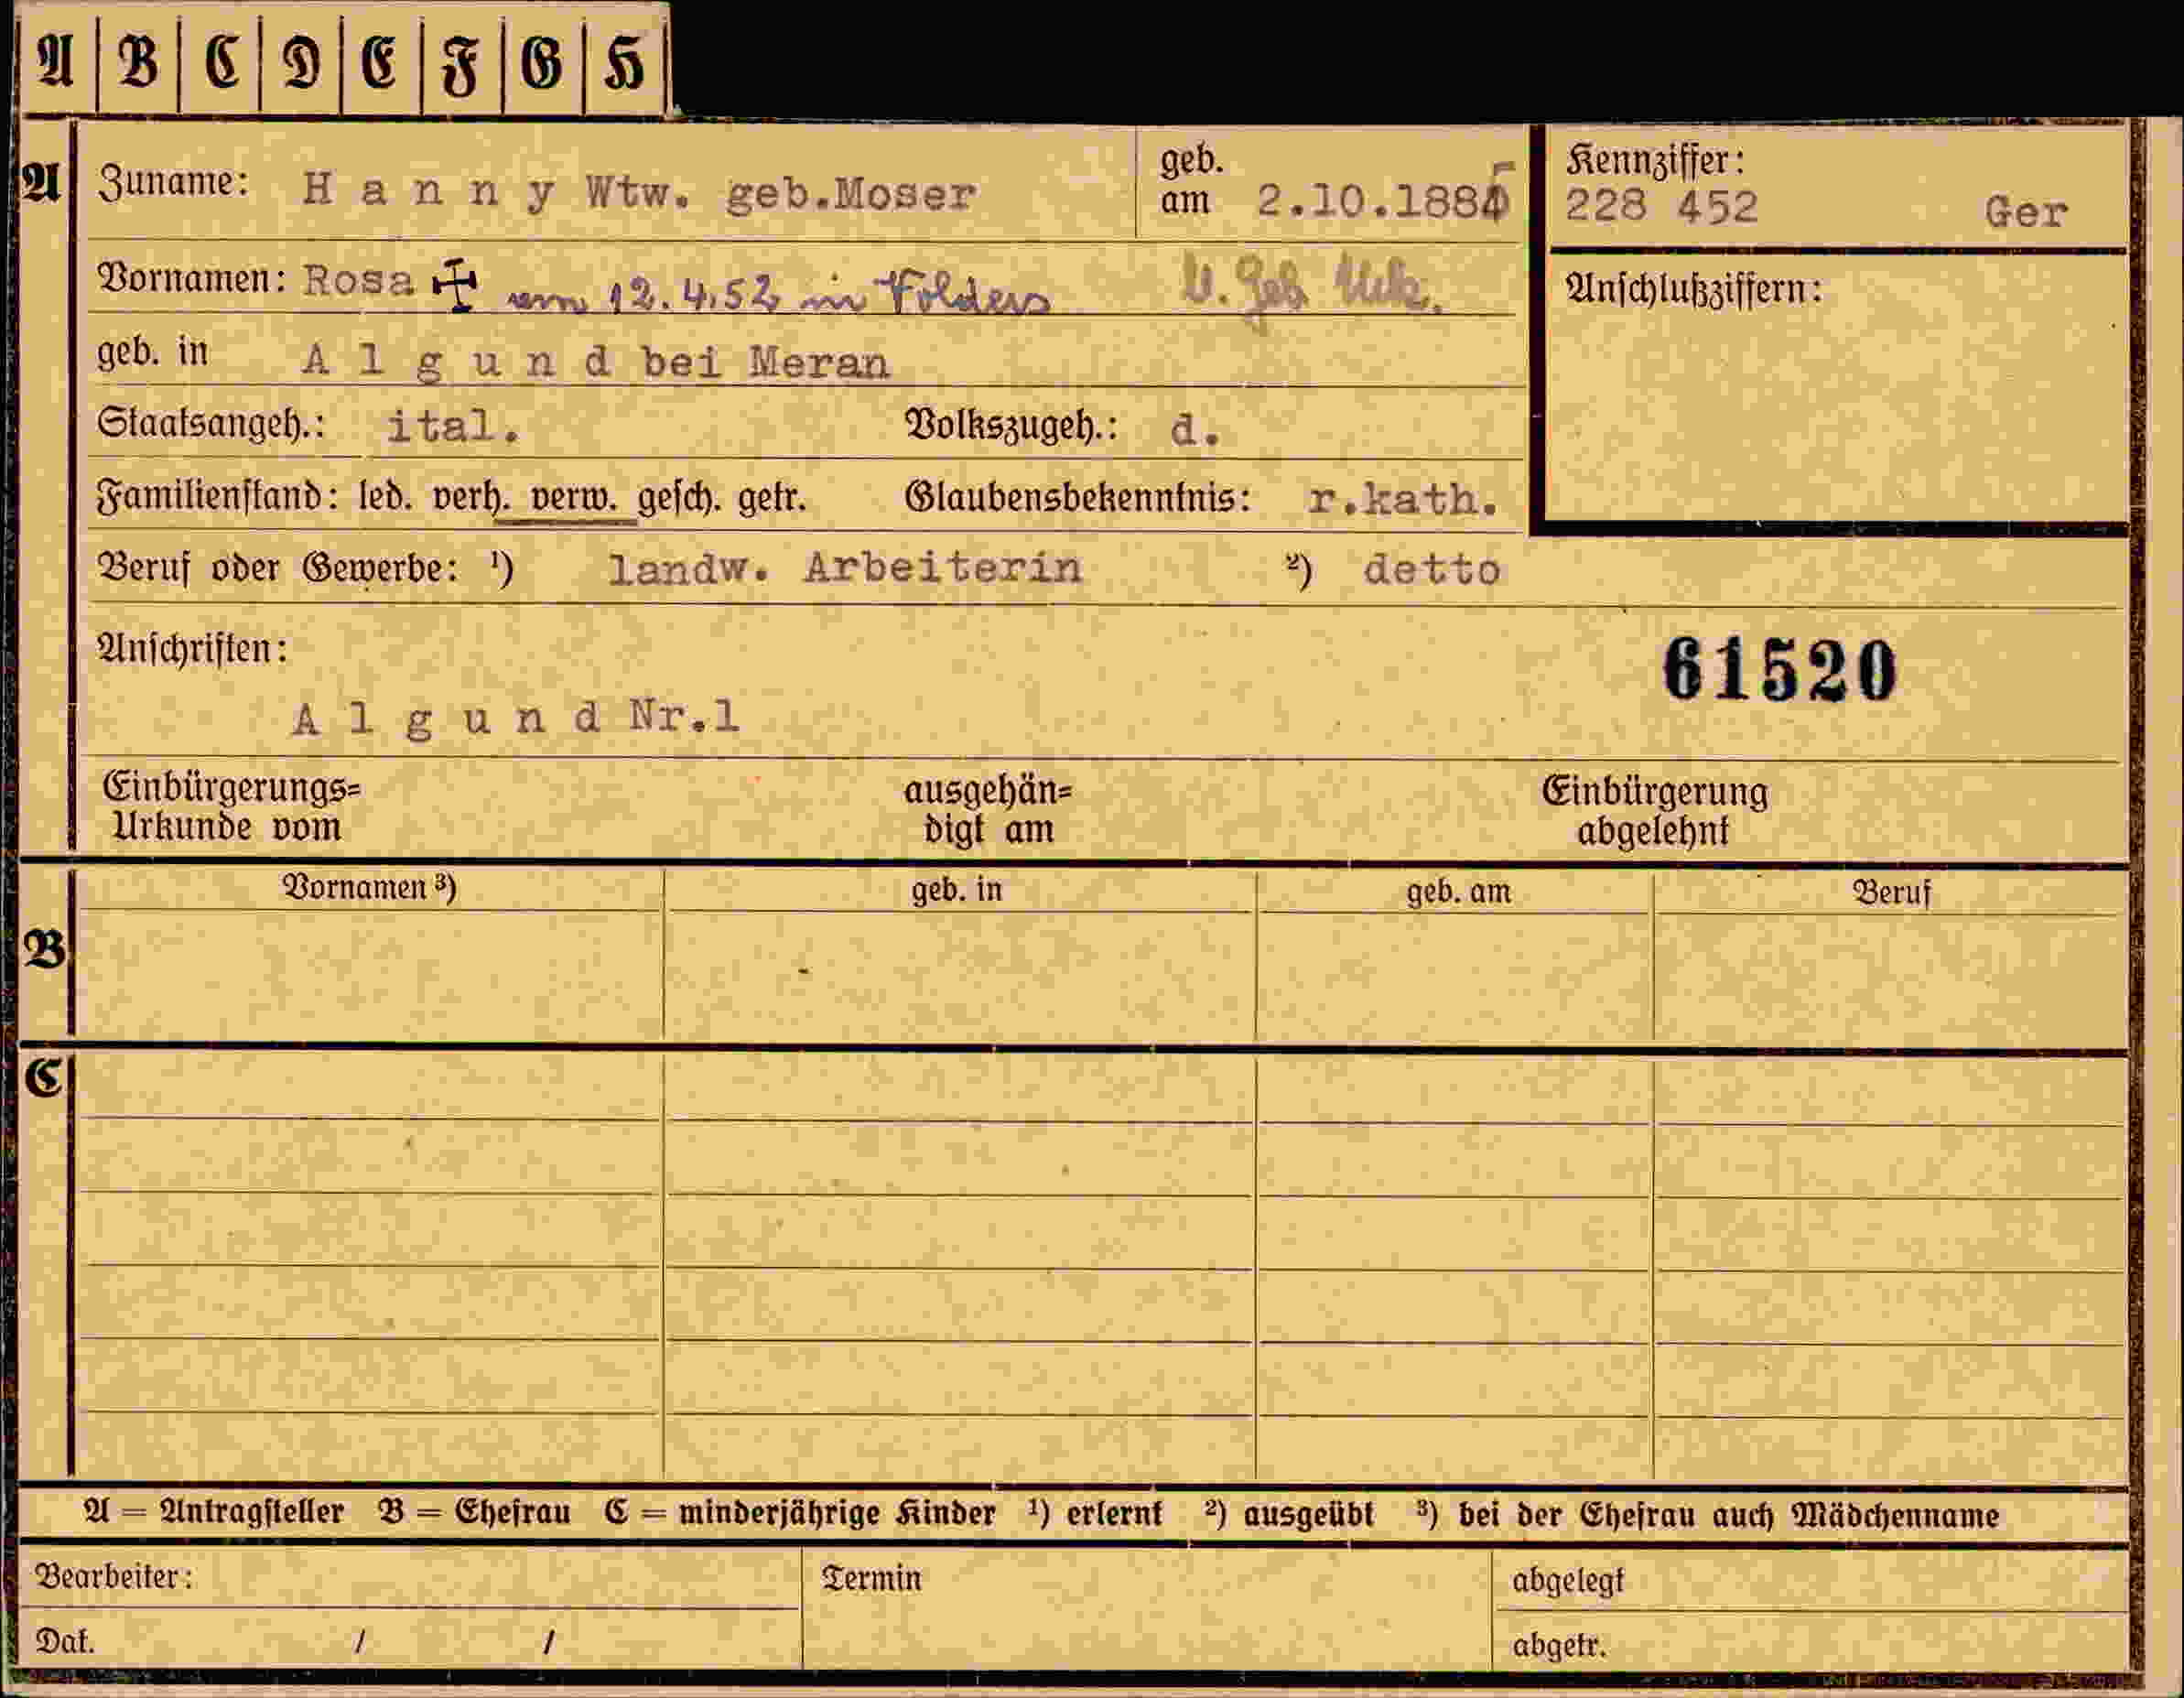 A B C D E F G H
A Zuname: Hanny Wtw. geb.Moser geb. am 2.10.1885 Kennziffer: 228 452 Ger
Vornamen: Rosa am 12.4.52 in Volders lt. Geb Urk. Anschlußziffern:
geb. in Algund bei Meran
Staatsangeh.: ital. Volkszugeh.: d.
Familienstand: led. verh. verw. gesch. getr. Glaubensbekenntnis: r.kath.
Beruf oder Gewerbe: ¹) landw. Arbeiterin ²) detto
Anschriften: 61520
Algund Nr.1
Einbürgerungs= ausgehän= Einbürgerung
Urkunde vom digt am abgelehnt
Vornamen ³) geb. in geb. am Beruf
B
C
A = Antragsteller B = Ehefrau C = minderjährige Kinder ¹) erlernt ²) ausgeübt ³) bei der Ehefrau auch Mädchenname
Bearbeiter: Termin abgelegt
Dat. / / abgetr.